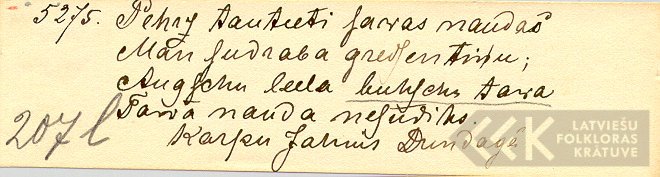 5275. Pehrz tauteeti sawas naudas
Man sudraba gredsentinu;
Augschu leela buhschu tawa
Tawa nauda nesudihs.
207 l
Karsku Jahnis Dundagā
LATVIEŠU
FOLKLORAS
KRĀTUVE